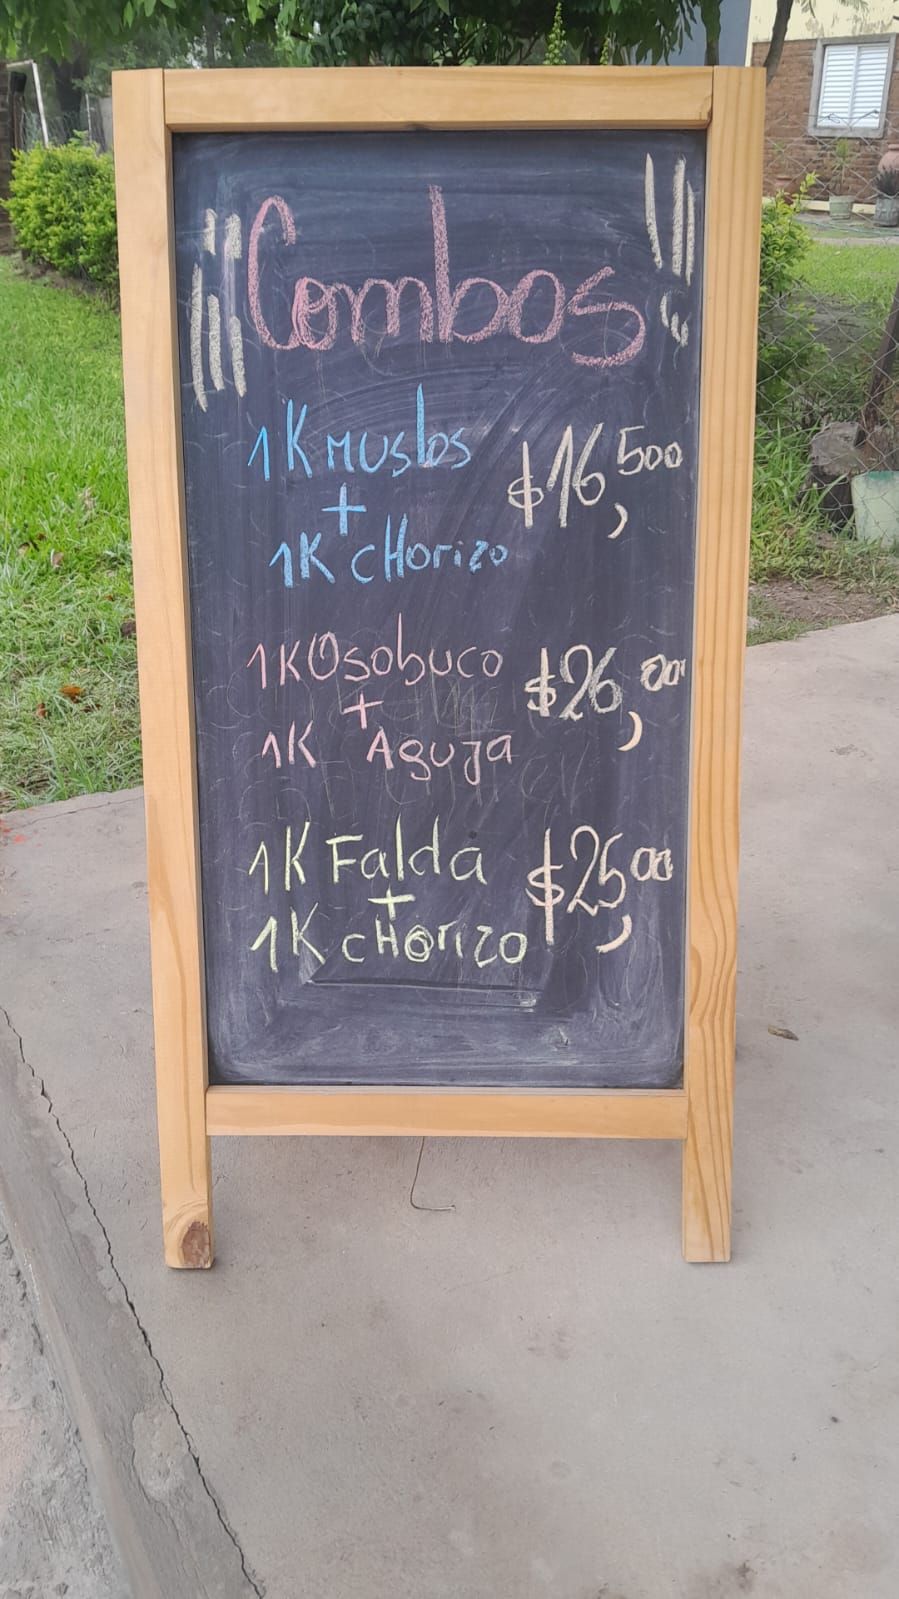 Combos
1K muslos $16,500
+
1K cHorizo
1K Osobuco $26,000
+
1K Aguja
1K Falda $25,00
+
1K cHorizo